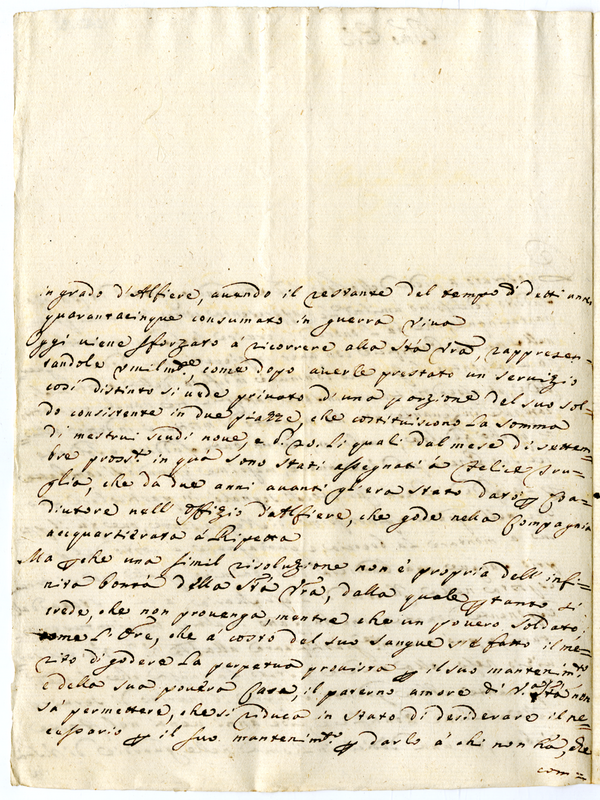 in grado d'Alfiere, avendo il restante del tempo di detti anni
quarantacinque consumato in guerra viva
Oggi viene sforzato à ricorrere alla Stà Vrã, rappresen-
tandole umilmte, come dopo averle prestato un servizio
così distinto si vede privato d'una porzione del suo sol-
do consistente in due piazze, che costituiscono La somma
di mestrui scudi nove, e b. 20. Li quali dal mese di settem-
bre prossº in quà sono stati assegnati à Felice
glia, che da due anni avanti gl'era stato dato ꝑ Coa-
diutore nell'Offizio d'Alfiere, che gode nella Compagnia
acquartierata à Ripetta
Ma ꝑche una simil risoluzione non è propria dell'infi-
nita bontà della Stà Vrã, dalla quale ꝑtanto si
crede, che non provenga, mentre che un povero soldato,
come L'Ore, che a costo del suo sangue si è fatto il me-
rito di godere La perpetua provista ꝑ il suo mantenimto
e della sua povera Casa, il paterno amore di V. Stà non
sà permettere, che si riduca in stato di desiderare il ne-
cessario ꝑ il suo mantenimto ꝑ darlo à chi non hà, che
com=